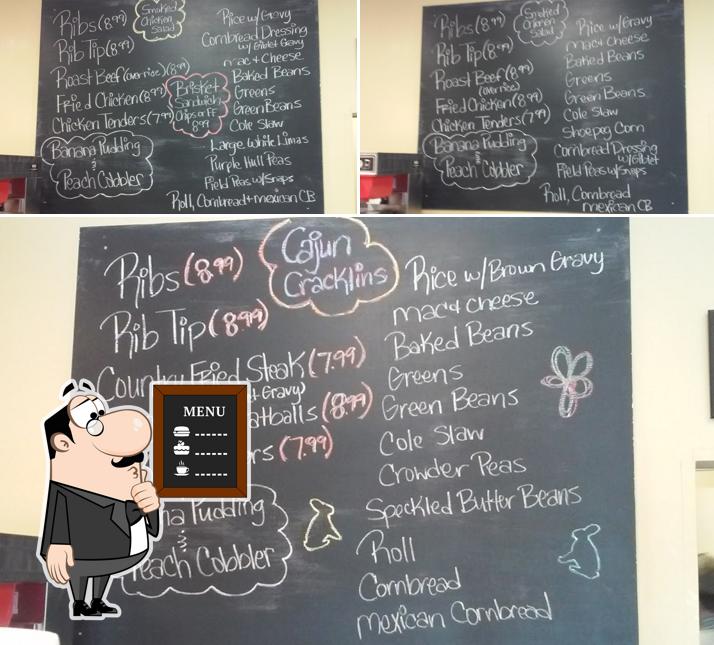 Smoked
Chicken
Salad
Ribs (8.99)
Rib Tip (8.99)
Roast Beef (over rice) (8.99)
Fried Chicken (8.99)
Chicken Tenders (7.99)
Brisket
Sandwich
Chips or FF
8.99
Banana Pudding
&
Peach Cobbler
Rice w/Gravy
Cornbread Dressing
w/Giblet Gravy
mac + Cheese
Baked Beans
Greens
Green Beans
Cole Slaw
Large White Limas
Purple Hull Peas
Field Peas w/Snaps
Roll, Cornbread + mexican CB
Smoked
Chicken
Salad
Ribs (8.99)
Rib Tip (8.99)
Roast Beef (8.99)
(over rice)
Fried Chicken (8.99)
Chicken Tenders (7.99)
Banana Pudding
&
Peach Cobbler
Rice w/Gravy
mac + Cheese
Baked Beans
Greens
Green Beans
Cole Slaw
Shoepeg Corn
Cornbread Dressing
w/Giblet
Field Peas w/Snaps
Roll, Cornbread
mexican CB
Cajun
Cracklins
Ribs (8.99)
Rib Tip (8.99)
Country Fried Steak (7.99)
Gravy)
atballs (8.99)
rs (7.99)
na Pudding
&
Peach Cobbler
Rice w/Brown Gravy
mac + cheese
Baked Beans
Greens
Green Beans
Cole Slaw
Crowder Peas
Speckled Butter Beans
Roll
Cornbread
mexican Cornbread
MENU